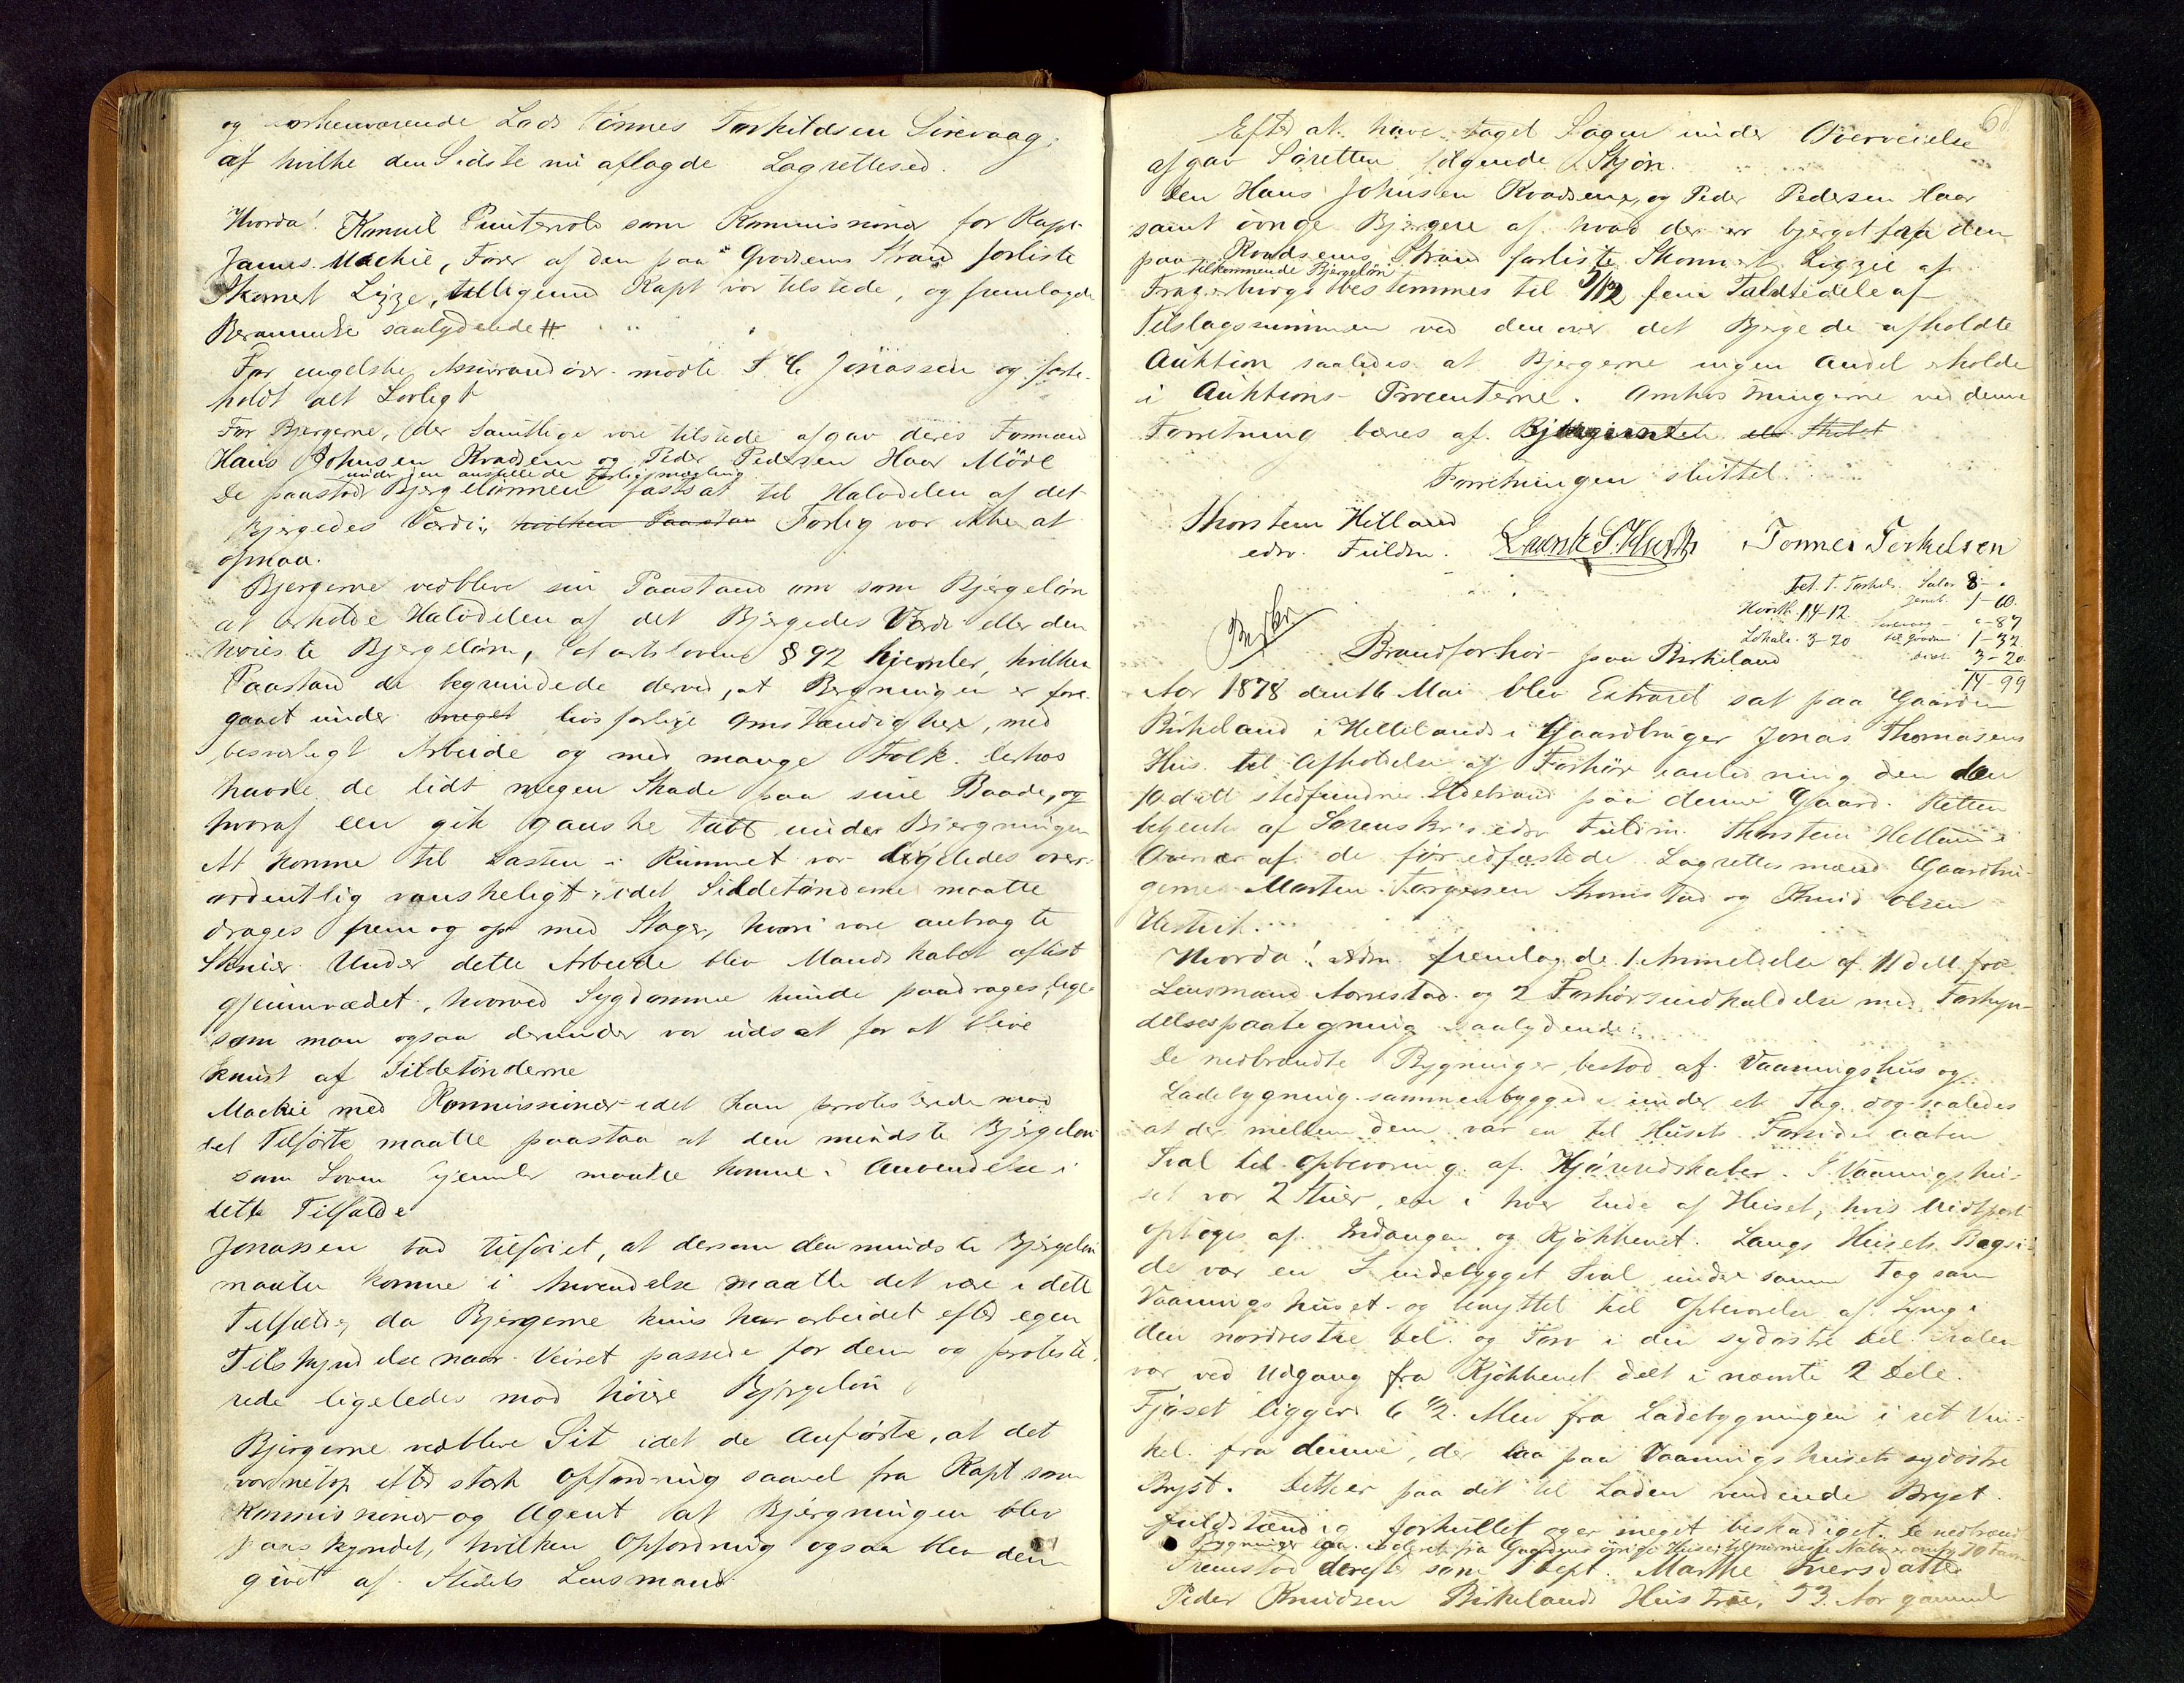 og forhenværende Lods Tønnes Torkildsen Sirevaag,
af hvilke den Sidste nu aflagde Lagrettesed.
Hvorda! Konsul Puntervold som Kommissionær for Kapt.
James Mackie, Fører af den paa Qvadsems Strand forliste
Skonnert Lizze, tilligemed Kapt var tilstede, og fremlagde
Berammelse saalydende #
For engelske Assurandører mødte T C Jonassen og forbe-
holdt alt Lovligt
For Bjergerne, der samtlige vare tilstede afgav deres Formænd
Hans Johnsen Kvadsem og Peder Pedersen Haar Møde
under den anstillede Forligsmægling
De paastod Bjergelønnen fastsat til Halvdelen af det
Bjergedes Værdi, hvilken Paastan Forlig var ikke at
opnaa.
Bjergerne vedblev sin Paastand om som Bjergeløn
at erholde Halvdelen af det Bjergedes Værdi eller den
høieste Bjergeløn, Søfartslovens § 92 hjemler, hvilken
Paastand de begrundede derved, at Bergningen er fore-
gaaet under meget livsfarlige Omstændigheder, med
besværligt Arbeide og med mange Folk. Derhos
havde de lidt megen Skade paa sine Baade, og
hvoraf een gik ganske tabt under Bjergningen
At komme til Lasten i Rummet var ligeledes over-
ordentlig vanskeligt, idet Sildetønderne maatte
drages frem og op med Stager, hvori vare anbragte
Skruer. Under dette Arbeide blev Mandskabet oftest
gjennvædet, hvorved Sygdomme kunde paadrages, lige
som man ogsaa derunder var udsat for at blive
knust af Sildetønderne
Mackie med Kommissionær idet han protesterede mod
det Tilførte maatte paastaa at den mindste Bjergeløn
som Loven hjemler maatte komme i Anvendelse i
dette Tilfælde
Jonassen bad tilføiet, at dersom den mindste Bjergeløn
maatte komme i Anvendelse maatte det være i dette
Tilfælde, da Bjergerne kuns har arbeidet efter egen
Tilskyndelse naar Veiret passede for dem og proteste-
rede ligeledes mod høiere Bjergeløn
Bjergerne vedblev Sit idet de Anførte, at det
var netop efter stærk Opfordring saavel fra Kapt som
Kommissionær og Agent at Bjergningen blev
paaskyndet, hvilken Opfordring ogsaa blev dem
givet af Stedets Lensmand.
68
Efter at have taget Sagen under Overveielse
afgav Søretten følgende Skjøn.
Den Hans Johnsen Kvadsem, og Peder Pedersen Haar
samt øvrige Bjergere af hvad der er bjerget fra den
paa Kvadsems Strand forliste Skonnert Lizzie af
tilkommende Bjergeløn
Frazerburgs bestemmes til 5/12 fem Tolvtedele af
Tilslagssummen ved den over det Bjergede afholdte
Auktion saaledes at Bjergerne ingen Andel erholde
i Auktions-Procenterne. Omkostningerne ved denne
Forretning bæres af Bjergerne
Forretningen sluttet.
Thorstein Helland
edsv. Fuldm. Tønnes Torkelsen
Bet. T. Torkels. Salar 8 - "
Hvirth. 14-12. 1-60.
- " -87
Lokale. 3-20 1-32
3-20.
14-99
Brandforhør paa Birkeland
Aar 1878 den 16 Mai blev Extraret sat paa Gaarden
Birkeland i Hetland i Gaardbruger Jonas Thomasens
Hus til Afholdelse af Forhør i anledning den den
10 d M stedfundne Ildebrand paa denne Gaard. Retten
betjentes af Sorenskr's edsv Fuldm. Thorstein Helland i
Overvær af de før edfæstede Lagrettesmænd Gaardbru-
gerne Morten Torgersen Aronstad og Knud Olsen
Hestvik.
Hvorda! Adm. fremlagde 1. Anmeldelse af 11 d M fra
Lensmand Aarrestad og 2 Forhørsindkaldelse med Forkyn-
delsespaategning saalydende:
De nedbrændte Bygninger bestod af Vaaningshus og
Ladebygning sammenbyggede under et Tag dog saaledes
at der mellem dem var en til Husets Forside aaben
Sval til Opbevaring af Kjøreredskaber. I Vaaningshu-
set var 2 Stuer, en i hver Ende af Huset, hvis Midtparti
optoges af Indgangen og Kjøkkenet. Langs Husets Bagsi-
de var en indebygget Sval under samme Tag som
Vaaningshuset og benyttet til Opbevarelse af Lyng i
den nordvestre Del og Torv i den sydøstre Del. Svalen
var ved Udgang fra Kjøkkenet delt i nævnte 2 Dele.
Fjøset ligger 6 1/2 Alen fra Ladebygningen i ret Vin-
kel fra denne, der laa paa Vaaningshusets sydøstre
Bryst. Dette er paa det til Laden vendende Bryst
fuldstændig forkullet og er meget beskadiget. De nedbrændte
Bygninger laa isoleret fra Gaardens øvrige Huse, til nærmeste Nabo er omtr 70 Favne
Fremstod derefter som 1 Dept. Marthe Iversdatter
Peder Knudsen Birkelands Hustrue, 53 Aar gammel